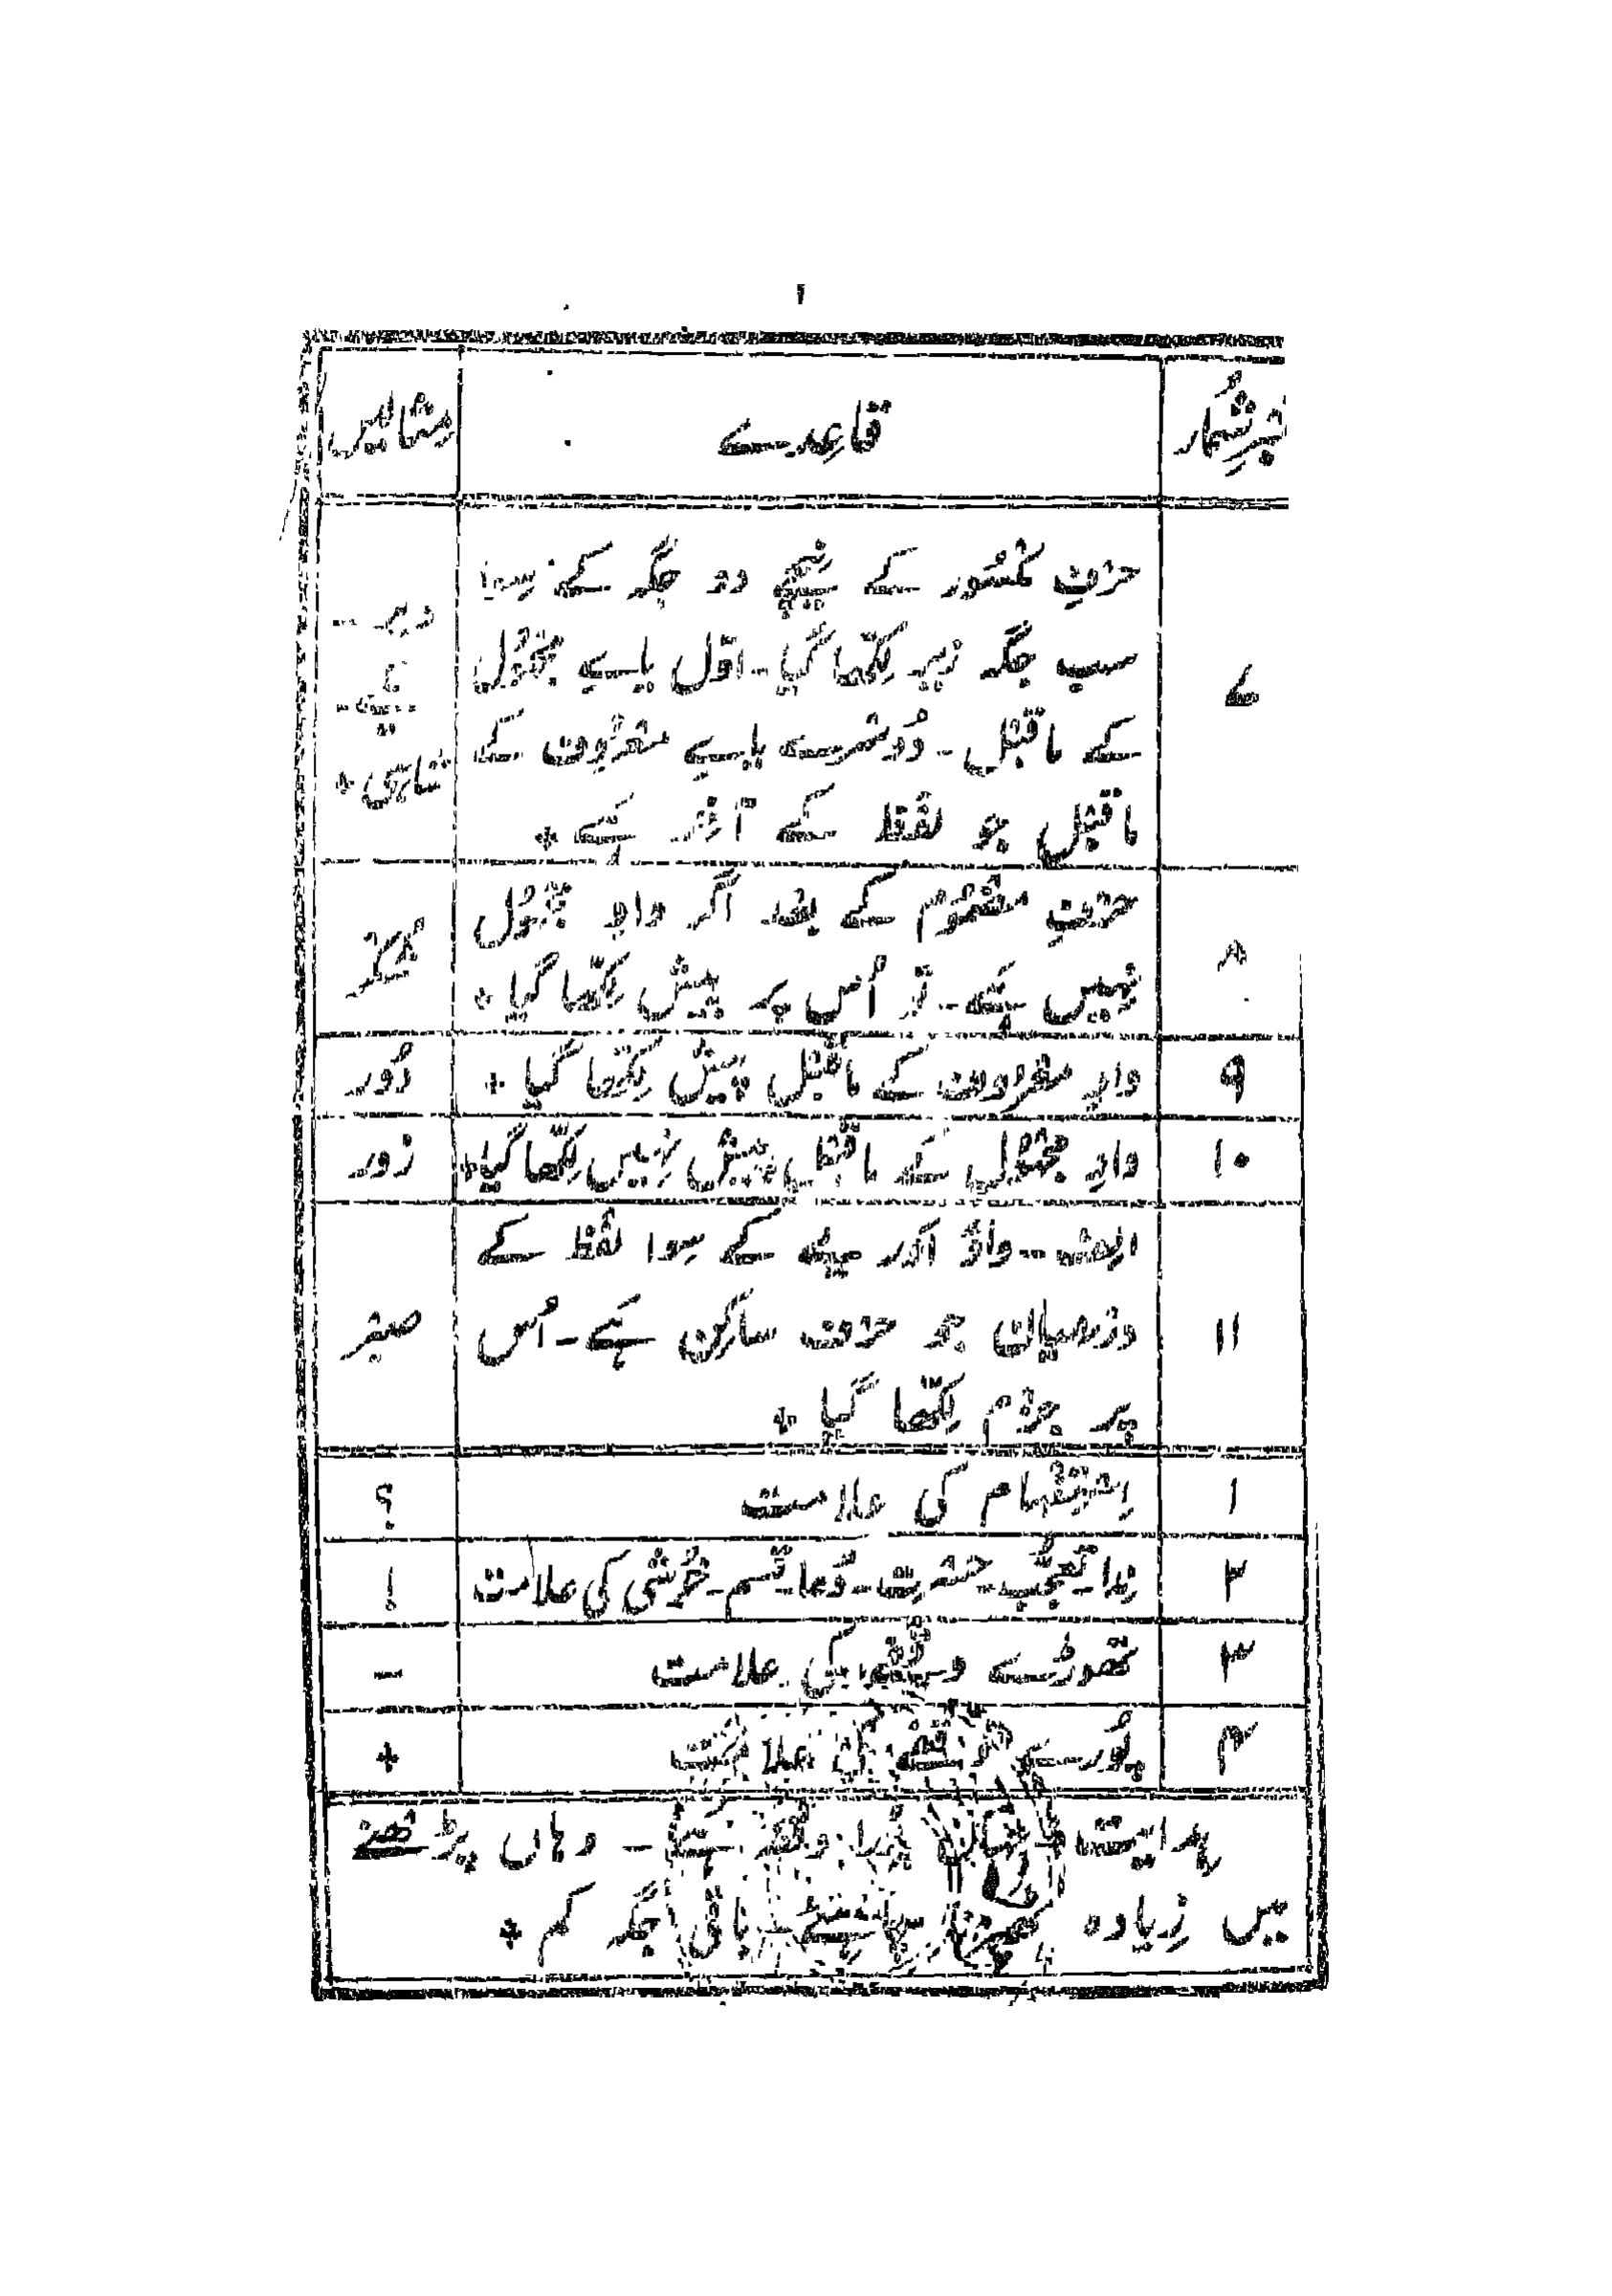 ۱
نمبرِ شُمار قاعِدے مِثالیں
حرْفِ مکْسُور کے نِیچے دو جگہ کے سِوا
سب جگہ زیر لِکّھا گیا ۔ اوّل یاے مجْہُول
کے ماقبْل ۔ دُوسْرے یاے معْرُوف کے
ماقبْل جو لفْظ کے آخِر ہَے +
۷
دیر ۔
شاہی +
حرْفِ مضْمُوم کے بعْد اگر واوِ مجْہُول
نہِیں ہَے ۔ تو اُس پر پیش لِکّھا گیا +
۸
۹ واوِ معْرُوف کے ماقبْل پیش لِکّھا گیا + دُور
۱۰ واوِ مجْہُول کے ماقبْل پیش نہِیں لِکّھا گیا + زور
الِف ۔ واؤ اَور یے کے سِوا لفْظ کے
درْمِیان جو حرْف ساکِن ہَے ۔ اُس
پر جزْم لِکّھا گیا +
۱۱
صبْر
۱ اِسْتِفْہام کی علامت ؟
۲ نِدا ۔ تعجُّب ۔ حسْرت ۔ دُعا ۔ قسم ۔ خُوشی کی علامت !
۳ تھوڑے وقْفے کی علامت ۔
۴ پُورے وقْفے کی علامت +
ہدایت جہاں پُورا وقْفہ ہَے ۔ وہاں پڑھْنے
میں زِیادہ ٹھہرْنا چاہِئے ۔ باقی جگہ کم +